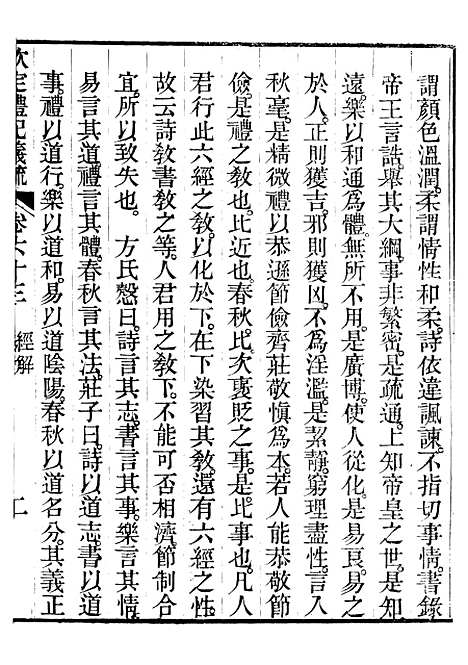 謂顏色溫潤。柔謂情性和柔。詩依違諷諫。不指切事情。書錄
帝王言誥。舉其大綱。事非繁密。是疏通。上知帝皇之世。是知
遠。樂以和通為體。無所不用。是廣博。使人從化。是易良。易之
於人。正則獲吉。邪則獲凶。不為淫濫。是絜靜。窮理盡性。言入
秋毫。是精微。禮以恭遜節儉齊莊敬慎為本。若人能恭敬節
儉。是禮之教也。比近也。春秋比次褒貶之事。是比事也。凡人
君行此六經之教。以化於下。在下染習其教。還有六經之性。
故云詩教書教之等。人君用之教下。不能可否相濟。節制合
宜。所以致失也。 方氏慤曰。詩言其志。書言其事。樂言其情。
易言其道。禮言其體。春秋言其法。莊子曰。詩以道志。書以道
事。禮以道行。樂以道和。易以道陰陽。春秋以道名分。其義正
欽定禮記義疏 卷六十三 經解 二